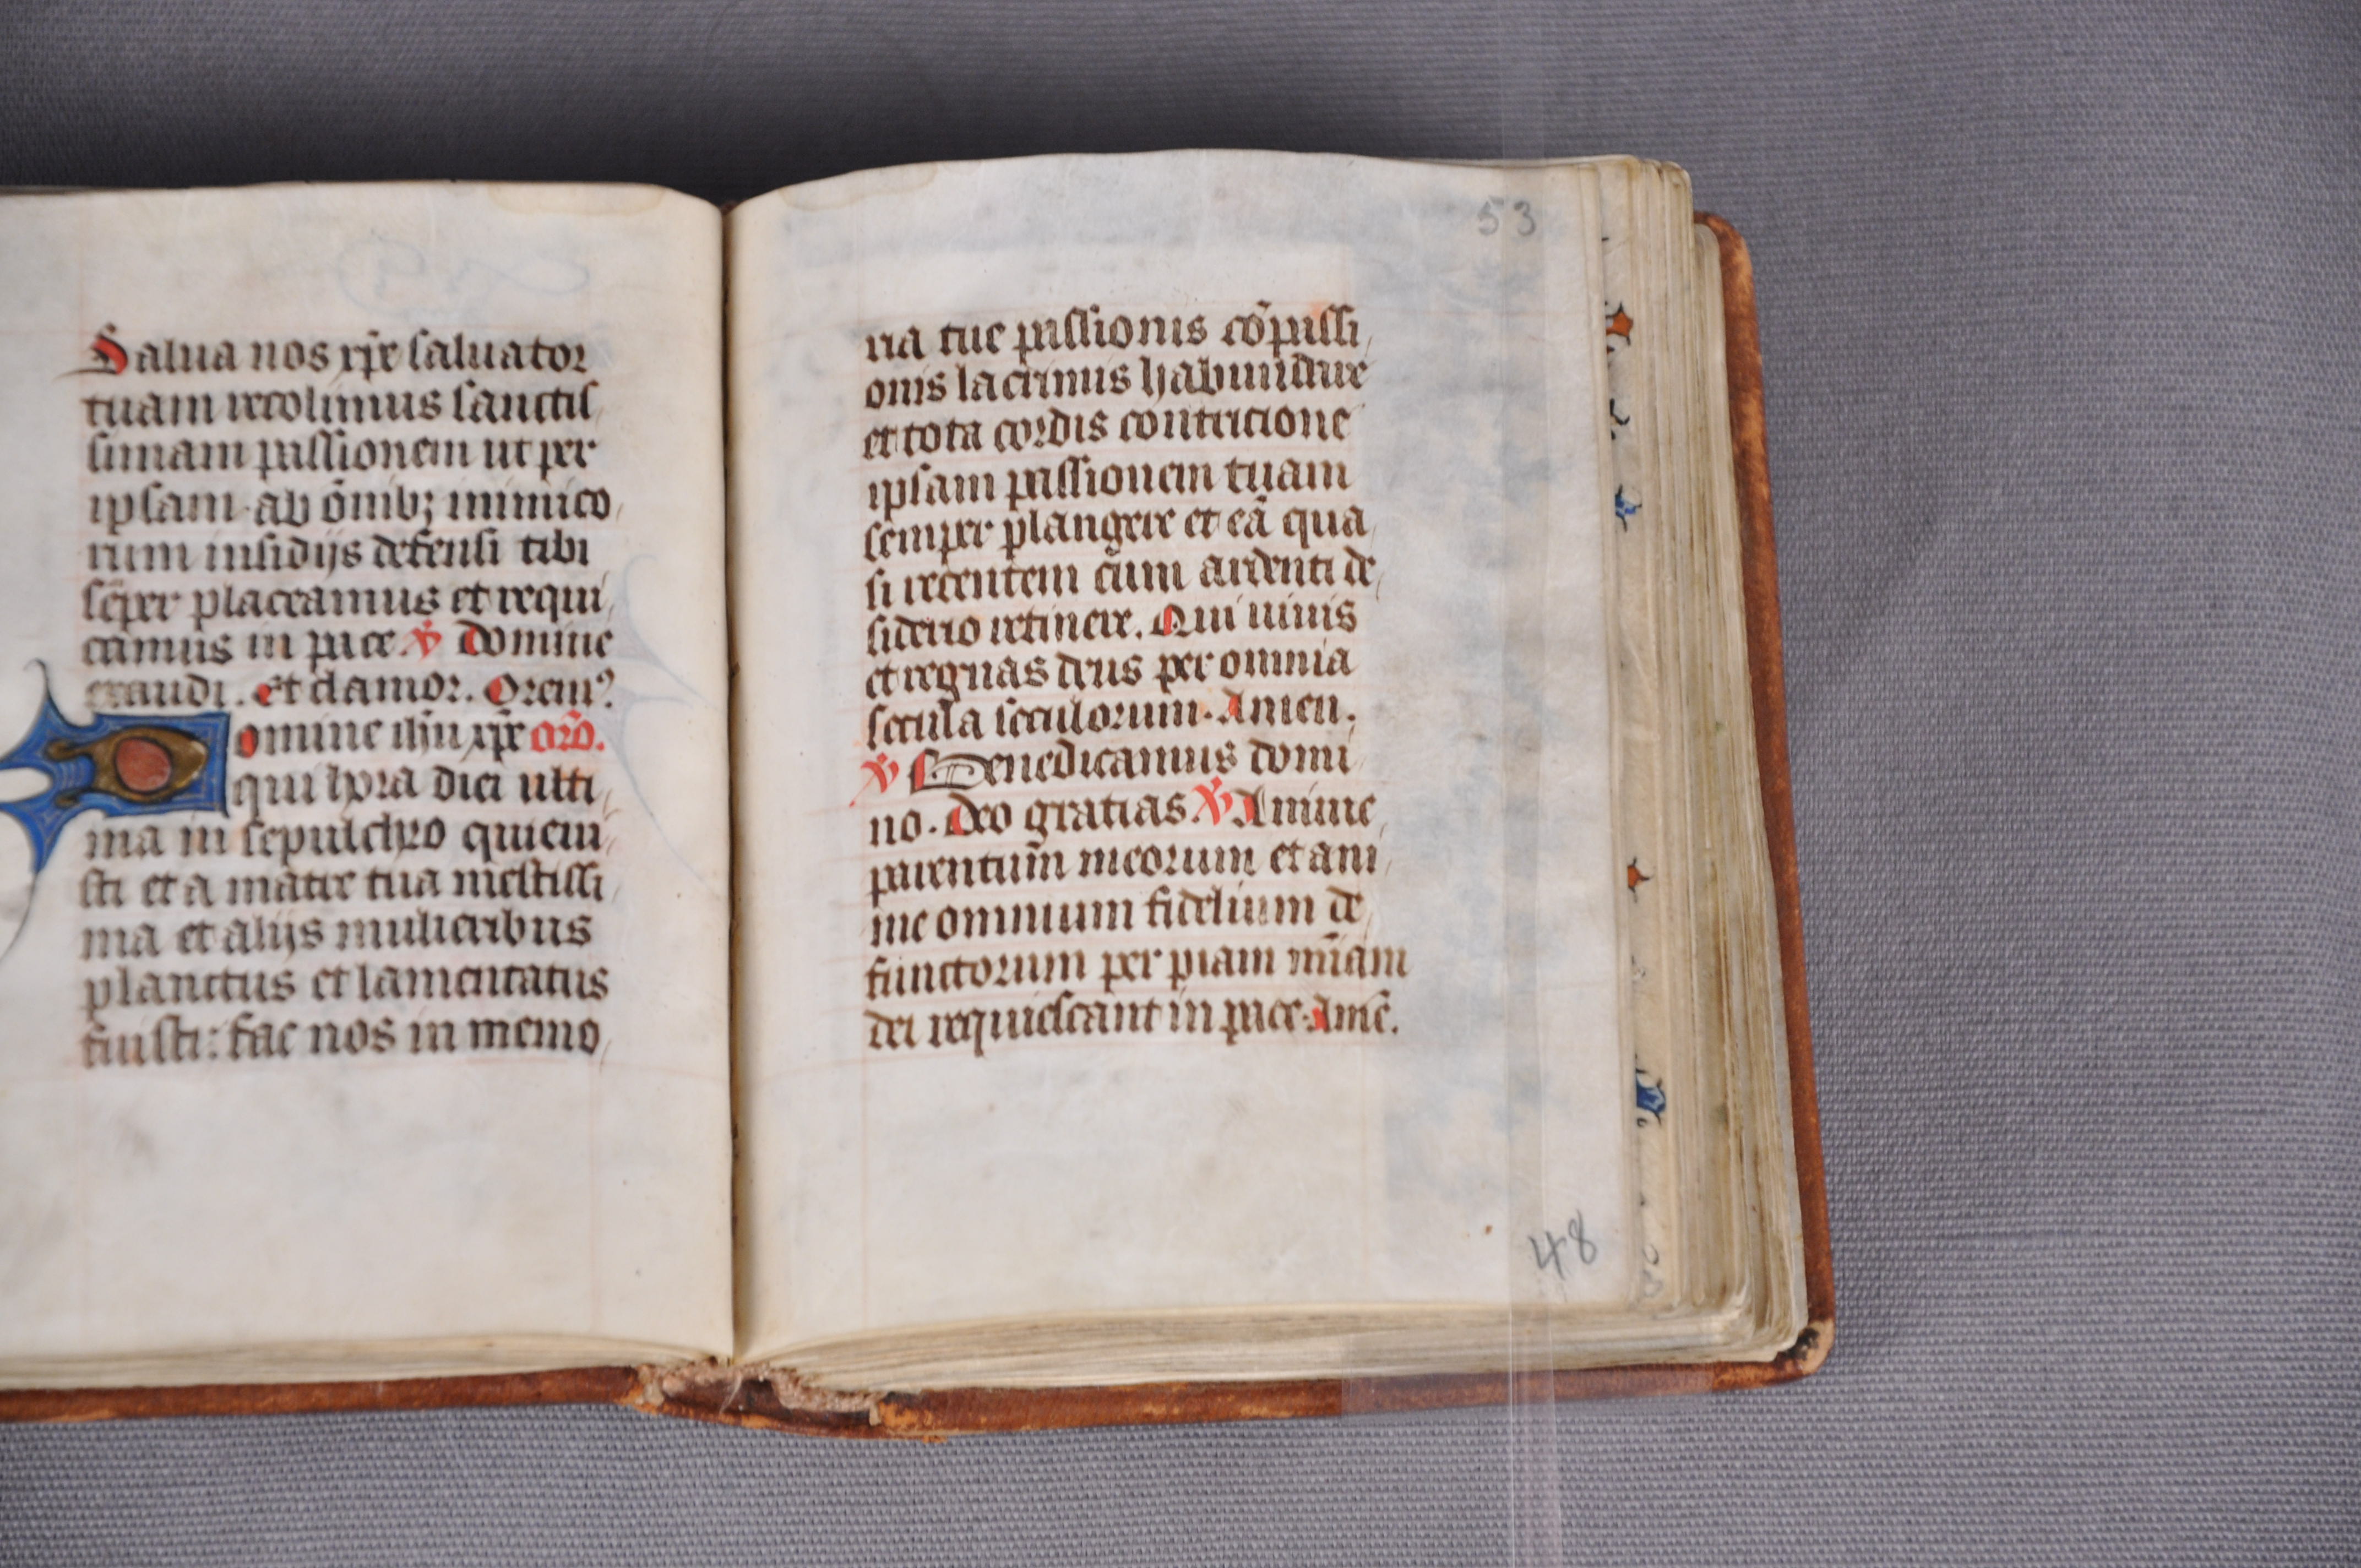 Salua nos xp̄e saluator
tuam recolimus sanctis
simam passionem ut per
ipsam ab om̄ib; inimico
rum insidijs defensi tibi
sēper placeamus et requi
camus in pace ℣ Domine
exaudi. Et clamor. Orem⁹.
Domine ih̄u xp̄e or̄o.
qui hora diei ulti
ma in sepulchro quieui
sti et a matre tua mestissi
ma et alijs mulieribus
planctus et lamentatus
fuisti: fac nos in memo
53
ria tue passionis cōpassi
onis lacrimis habundare
et tota cordis contricione
ipsam passionem tuam
semper plangere et eā qua
si recentem cum ardenti de
siderio retinere. Qui uiuis
et regnas deus per omnia
secula seculorum. Amen.
℣ Benedicamus domi
no. Deo gratias ℣ Anime
parentum meorum et ani
me omnium fidelium de
functorum per piam mīam
dei requiescant in pace. Amē.
48